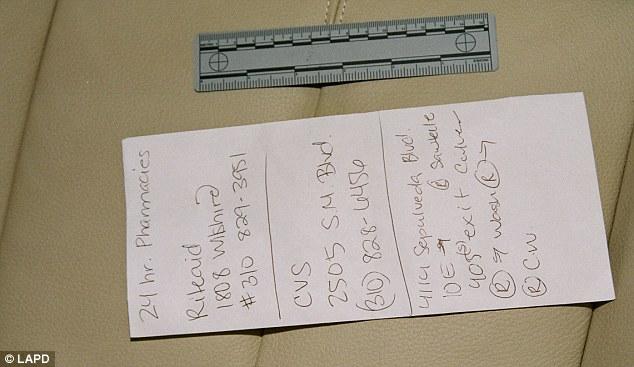 24 hr. Pharmacies
Riteaid
1808 Wilshire
# 310 829-3951
CVS
2505 S.M. Blvd.
(310) 828-6456
Sepulveda Blvd.
10 E → @ Sawtelle
405 exit Culver
(R) → Wash (R) →
(R) CW
© LAPD